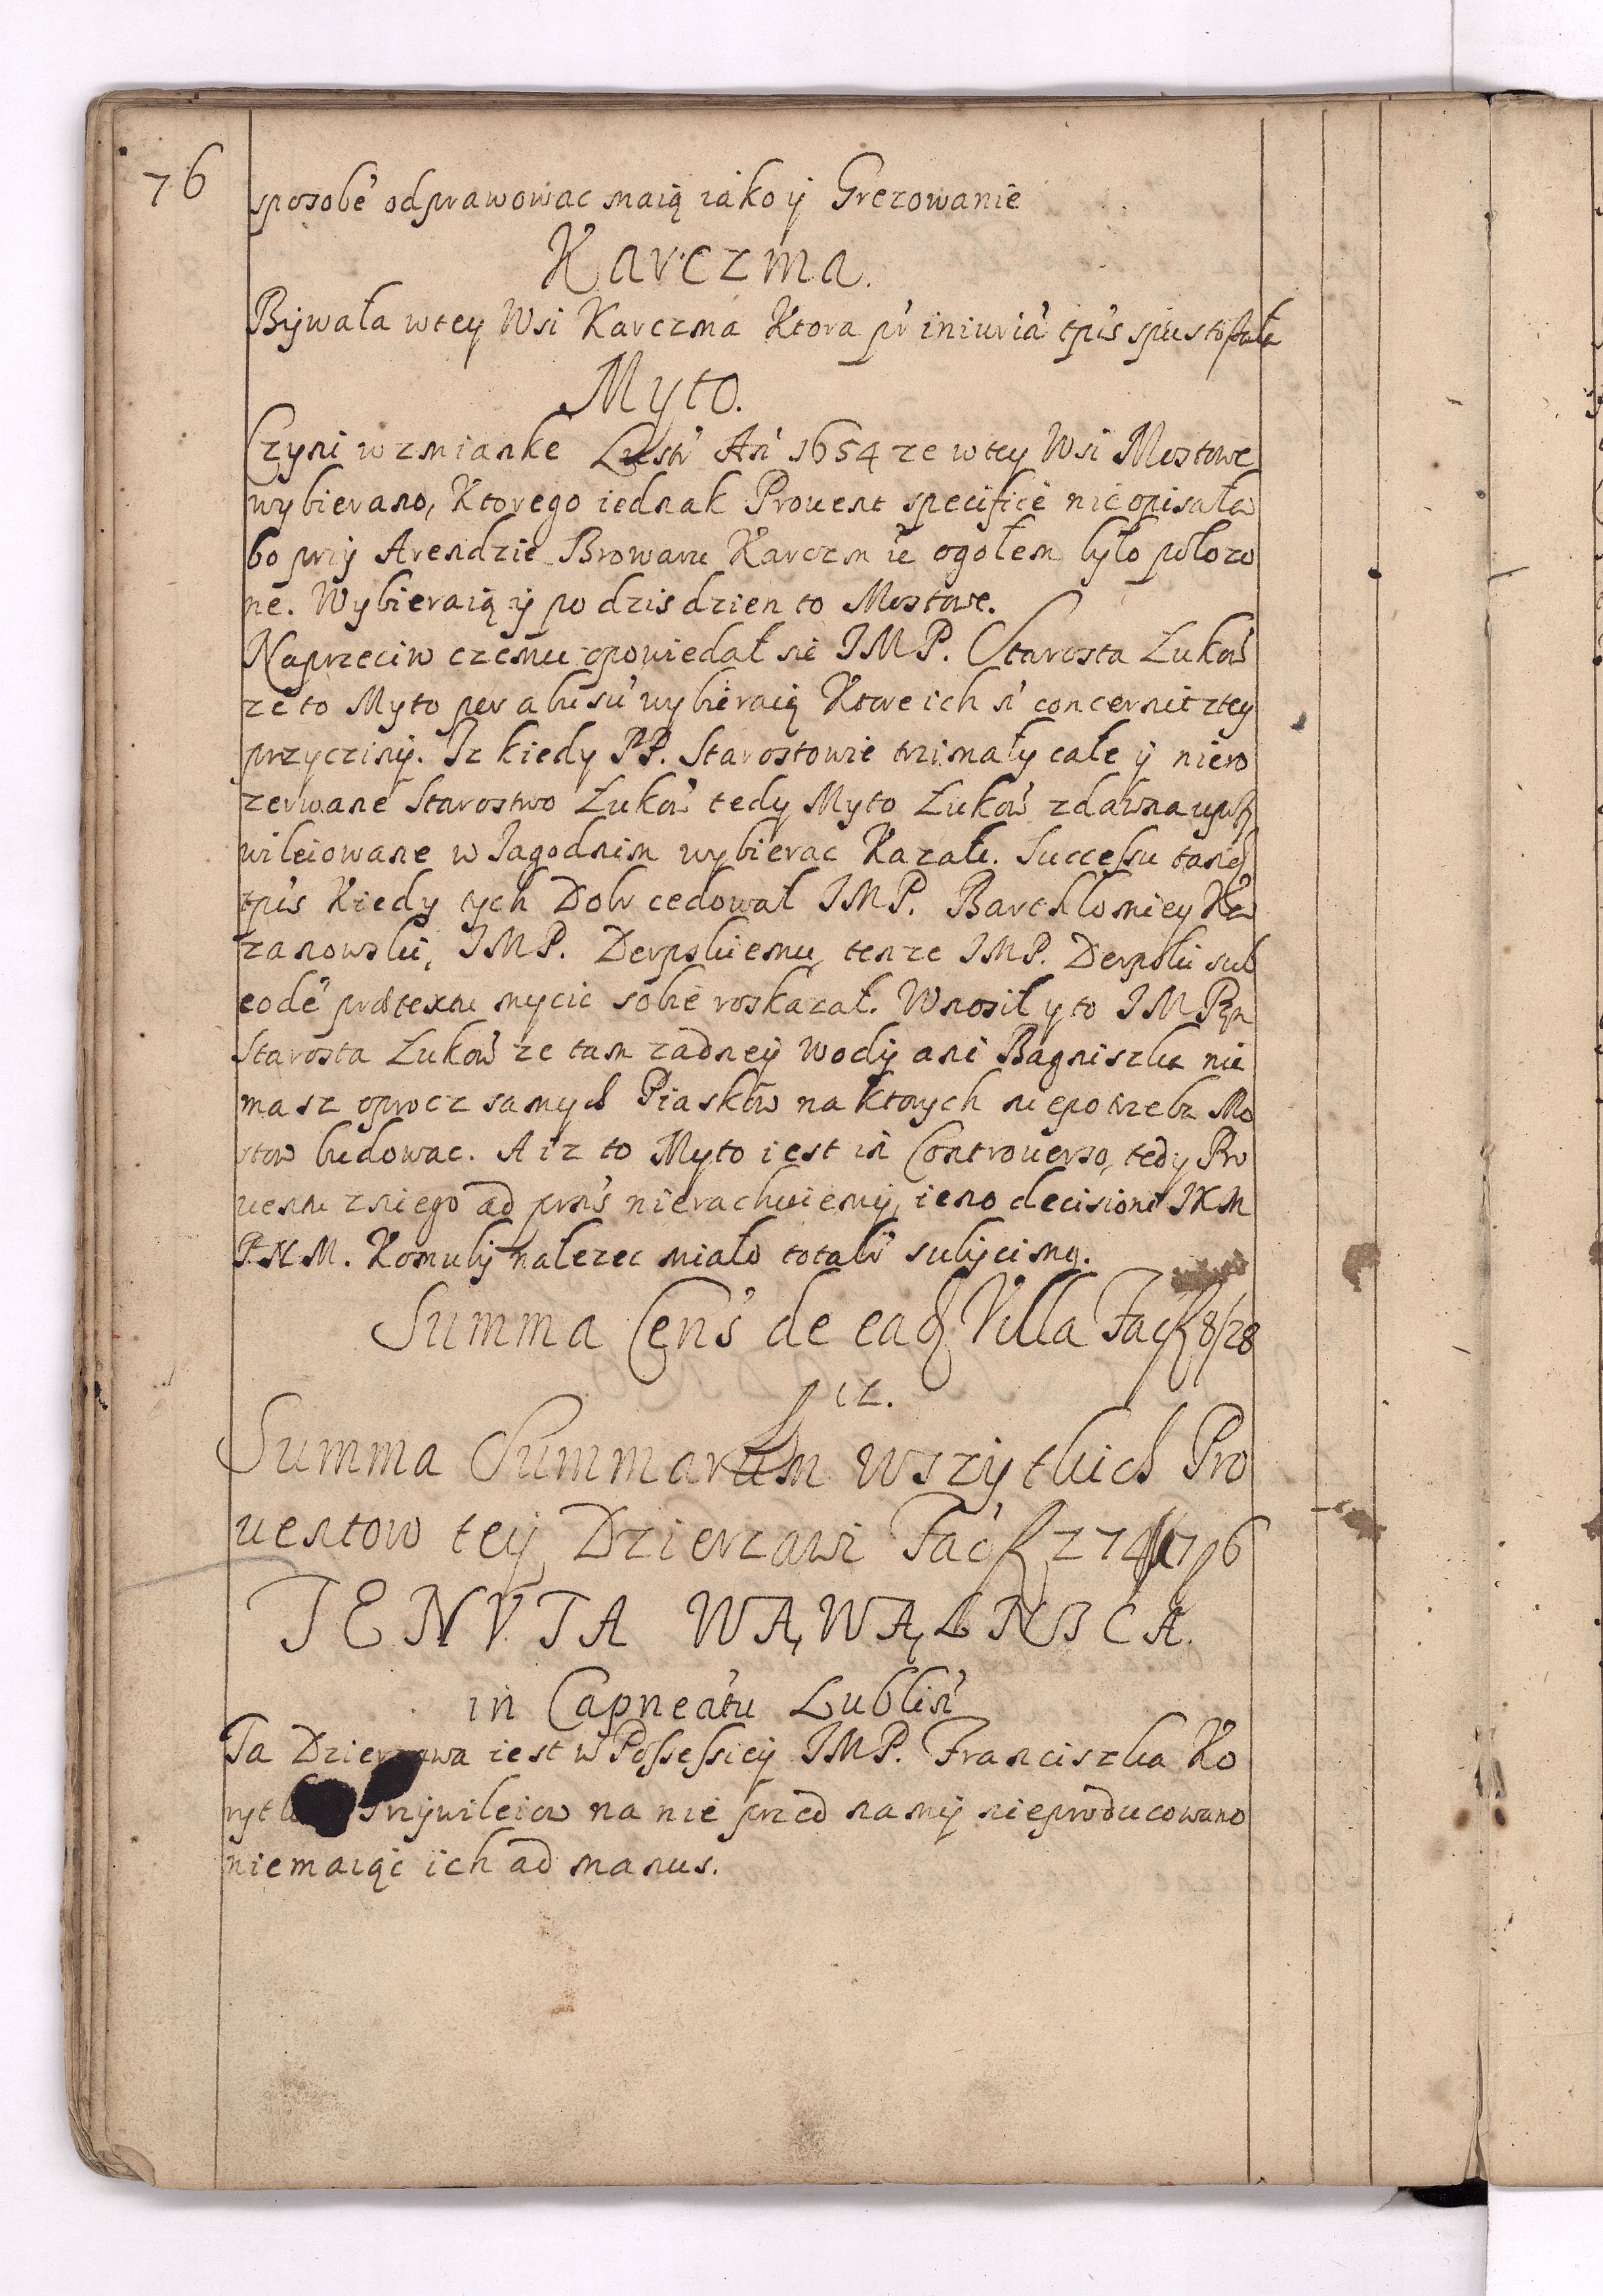 76
sposobe odprawowac maią iako ÿ Grezowanie
Karczma.
Bÿwała wtey Wsi Karczma Ktora pr iniuria tpis spustoszała
Myto.
Czyni wzmianke Lustr An 1654 ze wtey Wsi Mostowe
wybierano, Ktorego iednak Prouent specifice nie opisała
bo przÿ Arendzie Browaru Karczm ie ogołem było połozo
ne. Wybieraią ÿ po dzis dzien to Mostowe.
Naprzeciw czemu opowiedał sie IMP. Starosta Łukow
ze to Myto per abusu wybieraią Ktore ich n concernit z tey
przyczinÿ. Iz kiedy PP. Starostowie trzimały całe ÿ niero
zerwane Starostwo Łukow tedy Myto Łukow zdawna uprz
wileiowane w Iagodnim wybierac Kazałi. Successu tand
tpis Kiedy tych Dobr cedował IMP. Barthłomiey Ka
zanowski, IMP. Derpskiemu tenze IMP. Derpski sub
eode prætextu mycic sobie roskazał. Wnosił y to IMPan
Starosta Łukow ze tam zadneÿ Wodÿ ani Bagniska nie
masz oprocz samych Piaskow na ktorych niepotrzeba Mo
stow budowac. A iz to Myto iest in Controuerso, tedy Pro
uentu zniego ad prns nierachuiemÿ, ieno decisioni IKM
P.N.M. Komubÿ nalezec miało totalr subijcimq.
Summa Cens de ead Villa Facf 8/28
p 12.
Summa Summarum wszÿtkich Pro
uentow teÿ Dzierzawi Facf 274/17/6
TENVTA WĄWĄLNSCA.
in Capneatu Lublin
Ta Dzierzawa iest w Possessieÿ IMP. Franciszka Ko
na nie przed namÿ nieproducowano
niemaiąc ich ad manus.